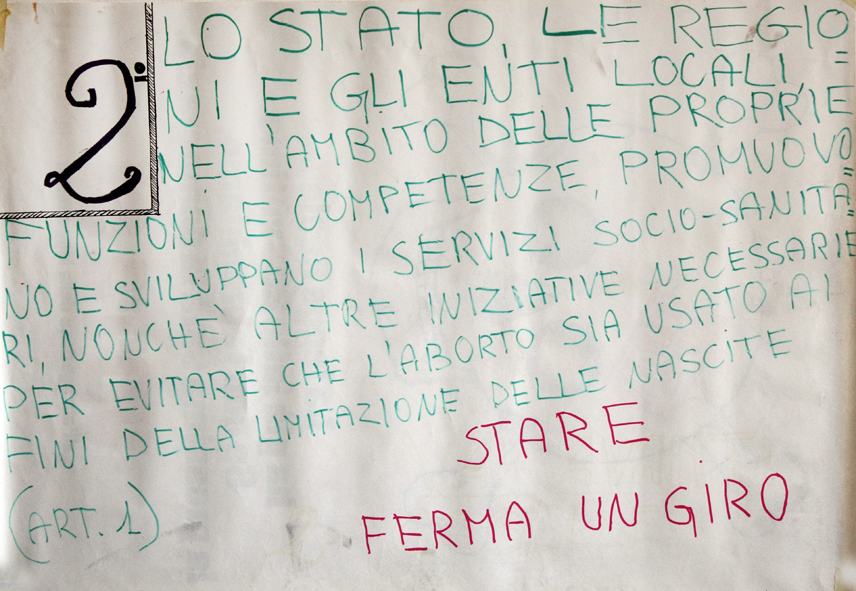 2°
LO STATO, LE REGIO=
NI E GLI ENTI LOCALI,
NELL'AMBITO DELLE PROPRIE
FUNZIONI E COMPETENZE, PROMUOVO=
NO E SVILUPPANO I SERVIZI SOCIO-SANITA=
RI, NONCHE' ALTRE INIZIATIVE NECESSARIE
PER EVITARE CHE L'ABORTO SIA USATO AI
FINI DELLA LIMITAZIONE DELLE NASCITE
(ART. 1)
STARE
FERMA UN GIRO